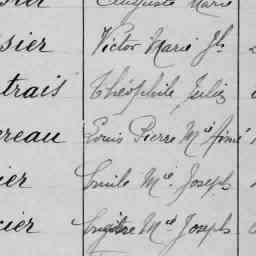 Auguste Marie
sier Victor Marie Jh
trais Théophile Jules
reau Louis Pierre Mie Aimé
ier Emile Mie Joseph
cier Mie Joseph